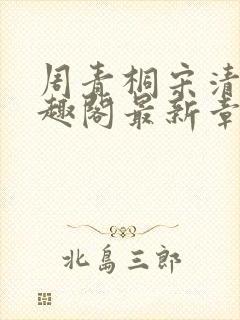 周青桐宋清
趣阁最新章
北島三郎